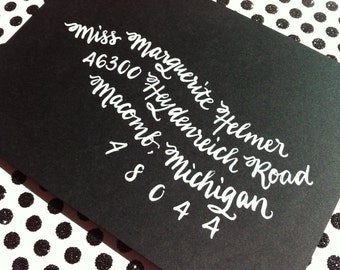 Miss Marguerite Helmer
46300 Heydenreich Road
Macomb, Michigan
48044